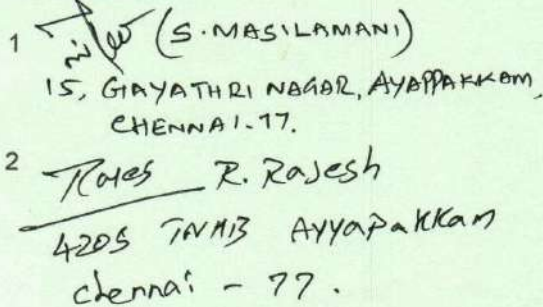 1 (S. MASILAMANI)
15, GAYATHRI NAGAR, AYAPPAKKAM,
CHENNAI-77.
2 R. Rajesh
4205 TNHB AyyapaKKam
chennai - 77.